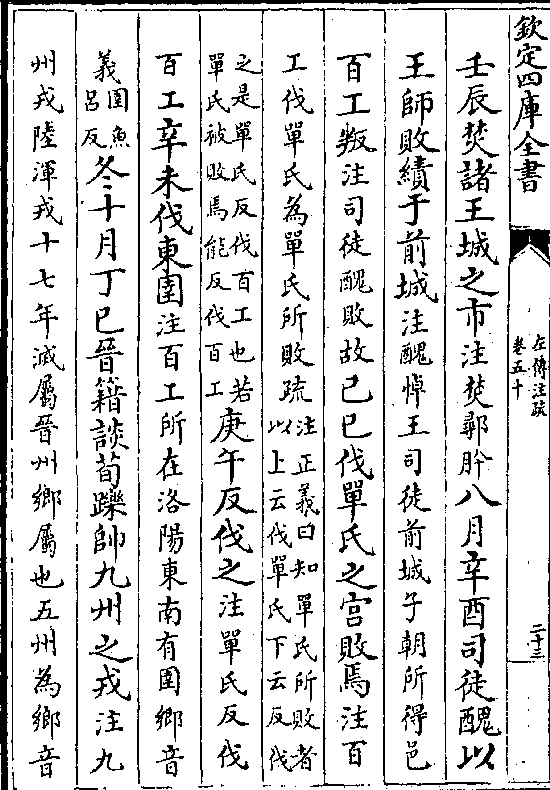 欽定四庫全書
左傳注疏
卷五十
二十三
壬辰焚諸王城之市注焚鄩肸八月辛酉司徒醜以
王師敗績于前城注醜悼王司徒前城子朝所得邑
百工叛注司徒醜敗故己巳伐單氏之宮敗焉注百
工伐單氏為單氏所敗疏
注正義曰知單氏所敗者
以上云伐單氏下云反伐
之是單氏反伐百工也若
單氏被敗焉能反伐百工
庚午反伐之注單氏反伐
百工辛未伐東圉注百工所在洛陽東南有圉鄉音
義圉魚
呂反
冬十月丁巳晉籍談荀躒帥九州之戎注九
州戎陸渾戎十七年滅屬晉州鄉屬也五州為鄉音